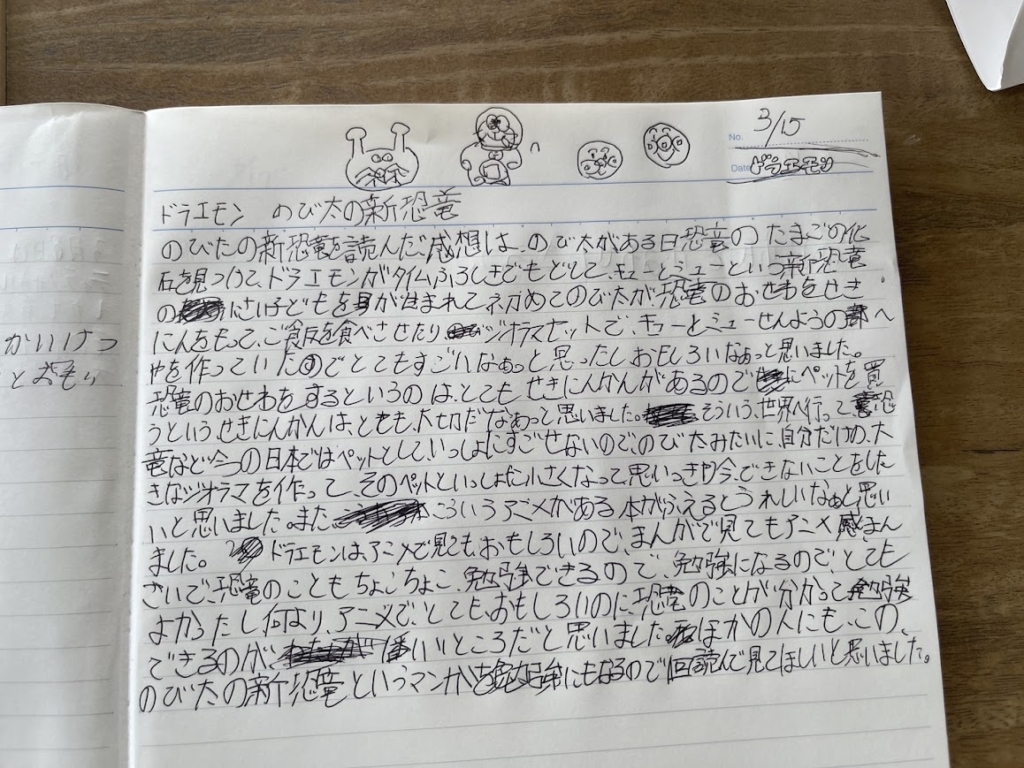 かいけつ
とおもい
No. 3/15
Date ドラエモン
ドラエモン のび太の新恐竜
のびたの新恐竜を読んだ感想は、のび太がある日恐竜のたまごの化
石を見つけて、ドラエモンがタイムふろしきでもどして、キューとミューという新恐竜
の にさい子どもを が生まれて、初めてのび太が恐竜のおせわをせき
にんをもって、ご食反を食べさせたり ジオラマセットで、キューとミューせんようのへ
やを作っていたのでとてもすごいなぁっと思ったしおもしろいなぁっと思いました。
恐竜のおせわをするというのは、とてもせきにんかんがあるので にペットを買
うという、せきにんかんは、とても、大切だなあっと思いました。 そういう、世界へ行って恐
竜など今の日本ではペットとしていっしょにすごせないので、のび太みたいに、自分だけの、大
きなジオラマを作って、そのペットといっしょに小さくなって、思いっきり今、できないことをした
いと思いました。また こういうアニメがある本がふえるとうれしいなぁと思い
ました。 ドラエモンは、アニメで見ても、おもしろいので、まんがで見てもアニメ感まん
さいで、恐竜のこともちょこちょこ、勉強できるので、勉強になるので、とても
よかったし何より、アニメで、とても、おもしろいのに、恐竜のことが分かって勉強
できるのが、 いいところだと思いました。 ほかの人にも、この、
のび太の新恐竜というマンガを勉強にもなるので 読んで見てほしいと思いました。